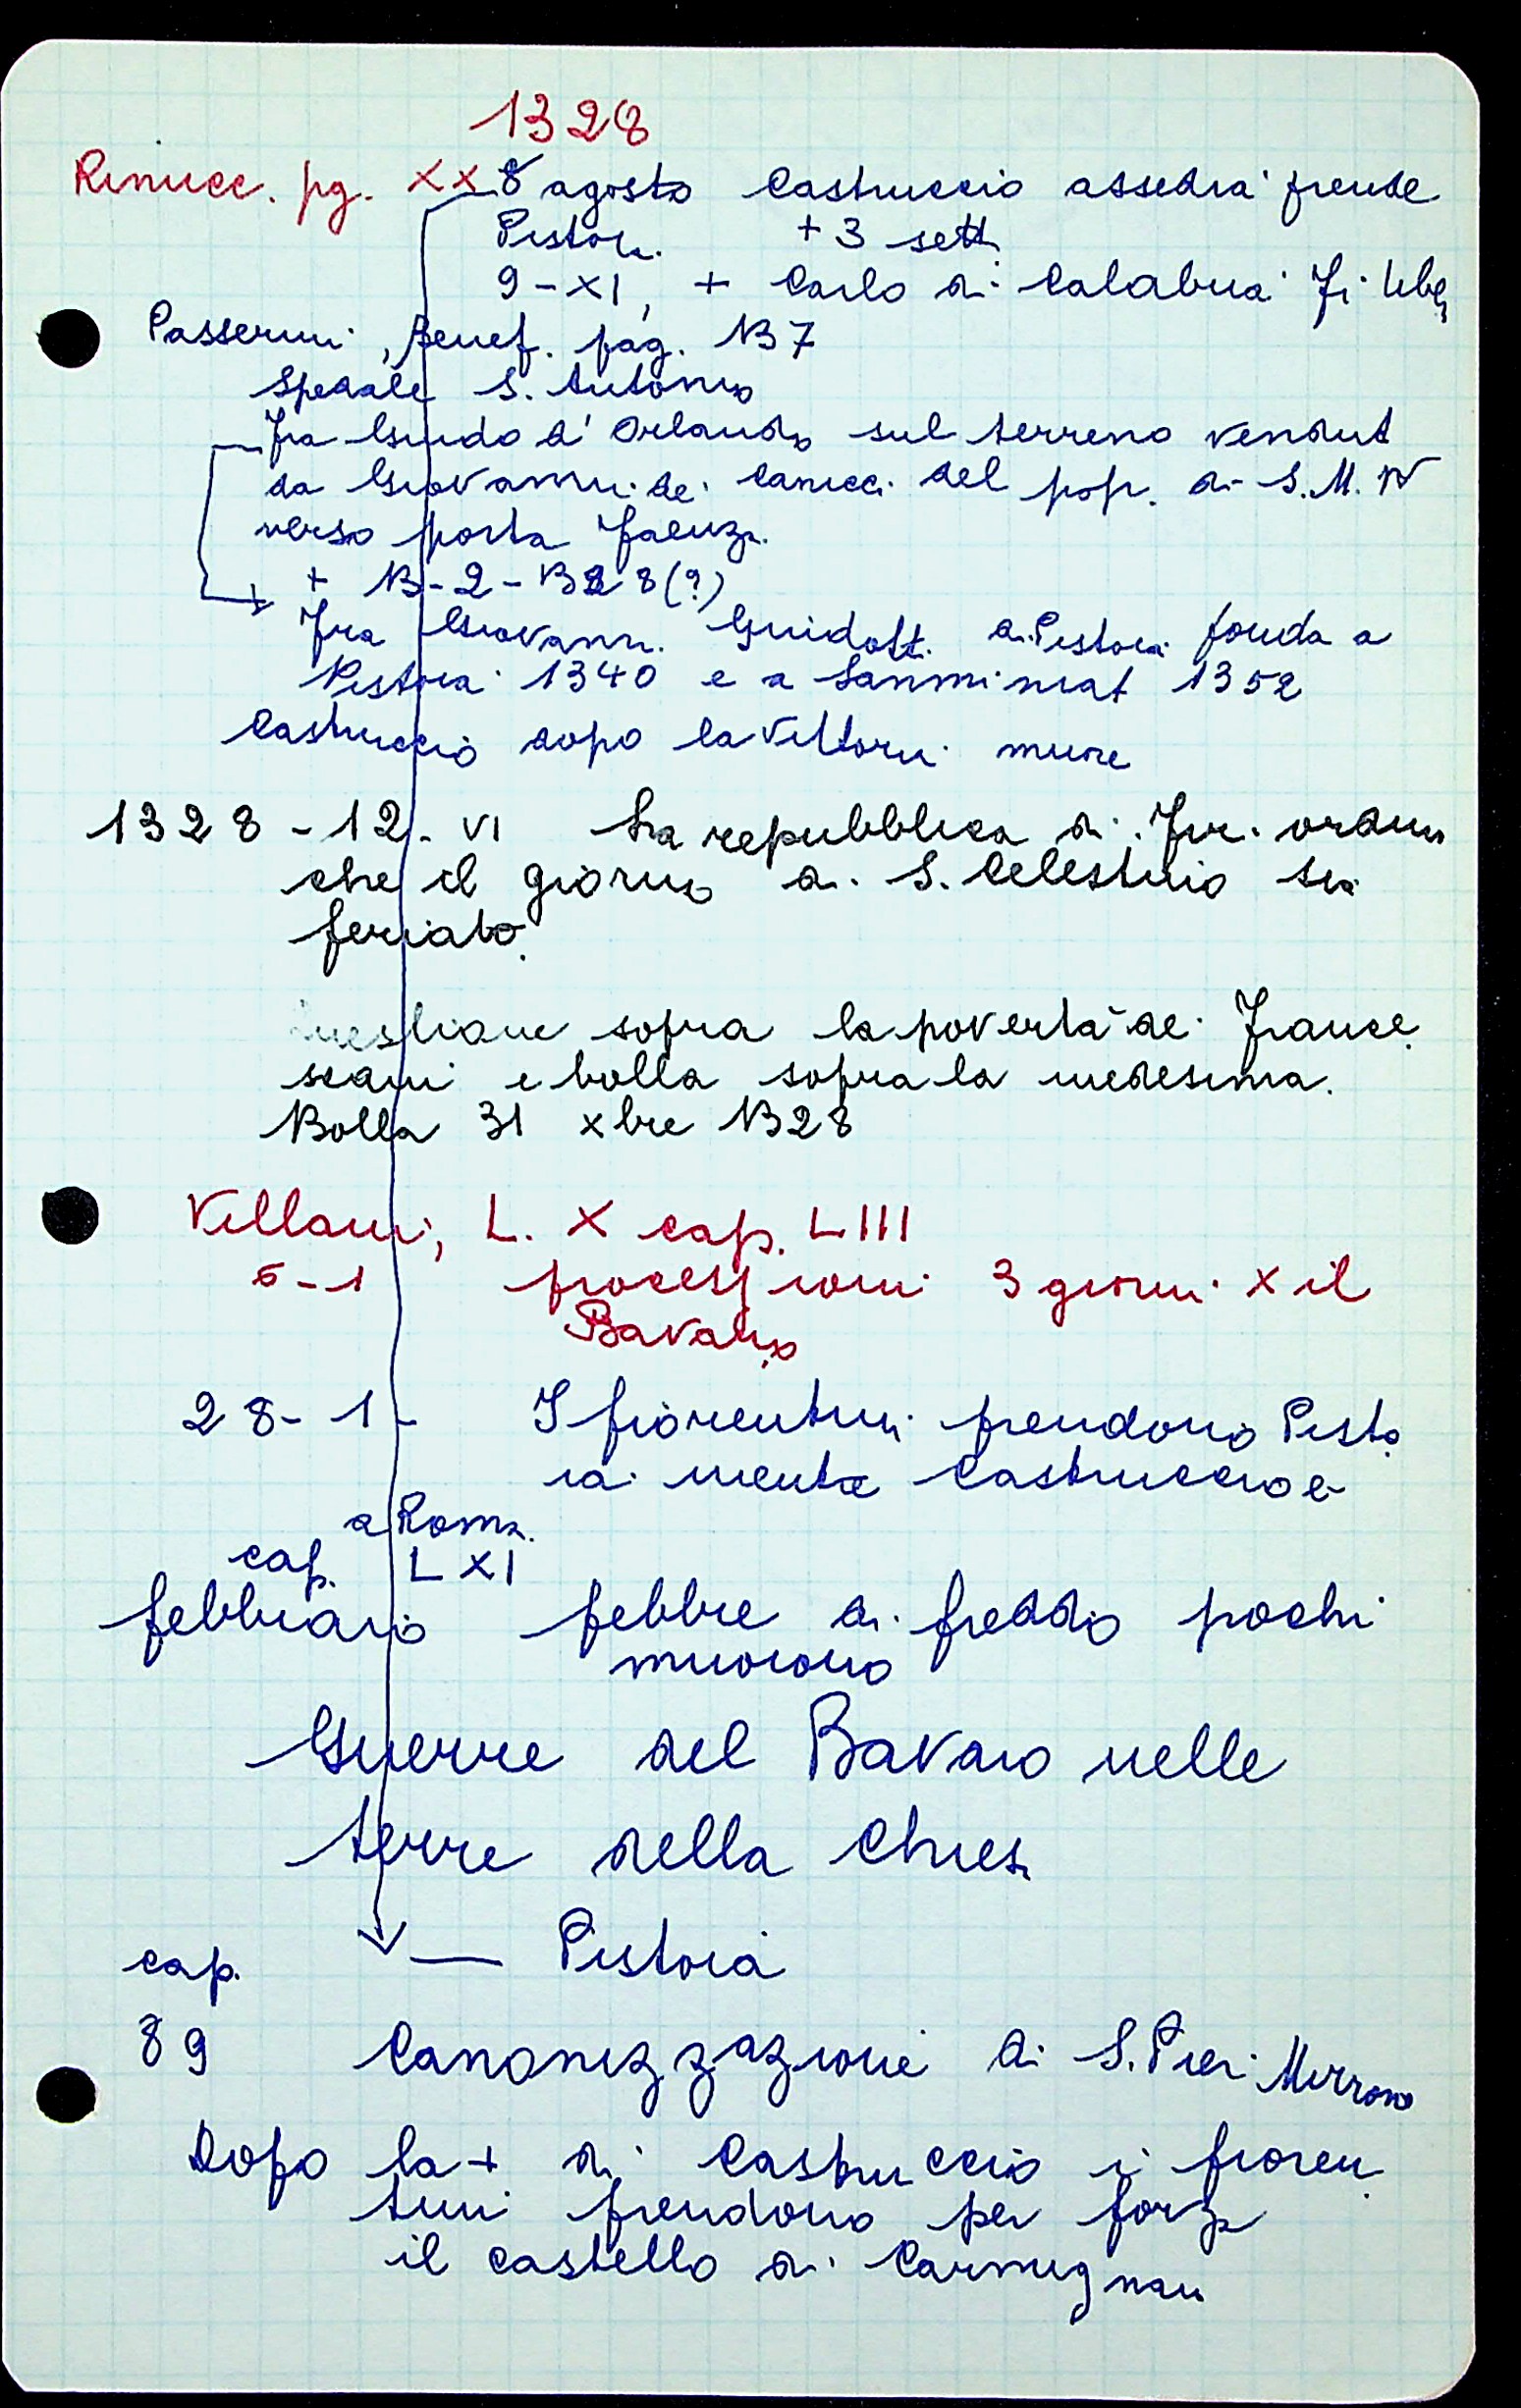 1328
Rinucc. pg. XX 8 agosto Castruccio assedia prende
Pistoia + 3 sett.
9-XI, + Carlo di Calabria
Passerini, Benef. pag. 137
Spedale S. Antonio
Fra Guido d'Orlando sul terreno vendut
da Giovanni de' Canicci del pop. di S.M.N
verso porta Faenza
+ 13-2-1328(?)
Fra Giovanni Guidotti di Pistoia fonda a
Pistoia 1340 e a Sanminiat 1352
Castruccio dopo la vittoria muore
1328 - 12 - VI La repubblica di Fir. ordina
che il giorno di S. Celestino sia
feriato.
Questione sopra la povertà de' France
scani e bolla sopra la medesima.
Bolla 31 xbre 1328
Villani, L. X cap. LIII
6-1 processioni 3 giorni x il
Bavaro
28-1- I fiorentini prendono Pisto
ia mentre Castruccio è
a Roma
cap. LXI
febbraio febbre di freddo pochi
muoiono
Guerre del Bavaro nelle
terre della Chiesa
— Pistoia
cap.
89 Canonizzazione di S. Pier Morrone
Dopo la + di Castruccio i fioren
tini prendono per forza
il castello di Carmignan